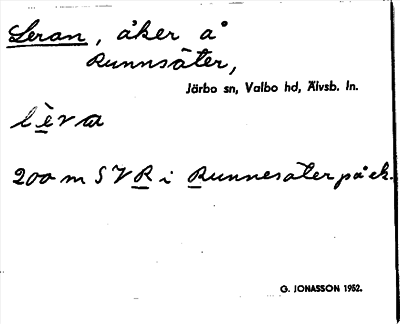 Leran, åker å
Runnsäter,
Järbo sn, Valbo hd, Älvsb. ln.
lèra
200 m SV R i Runnesäter på ek.
G. JONASSON 1952.